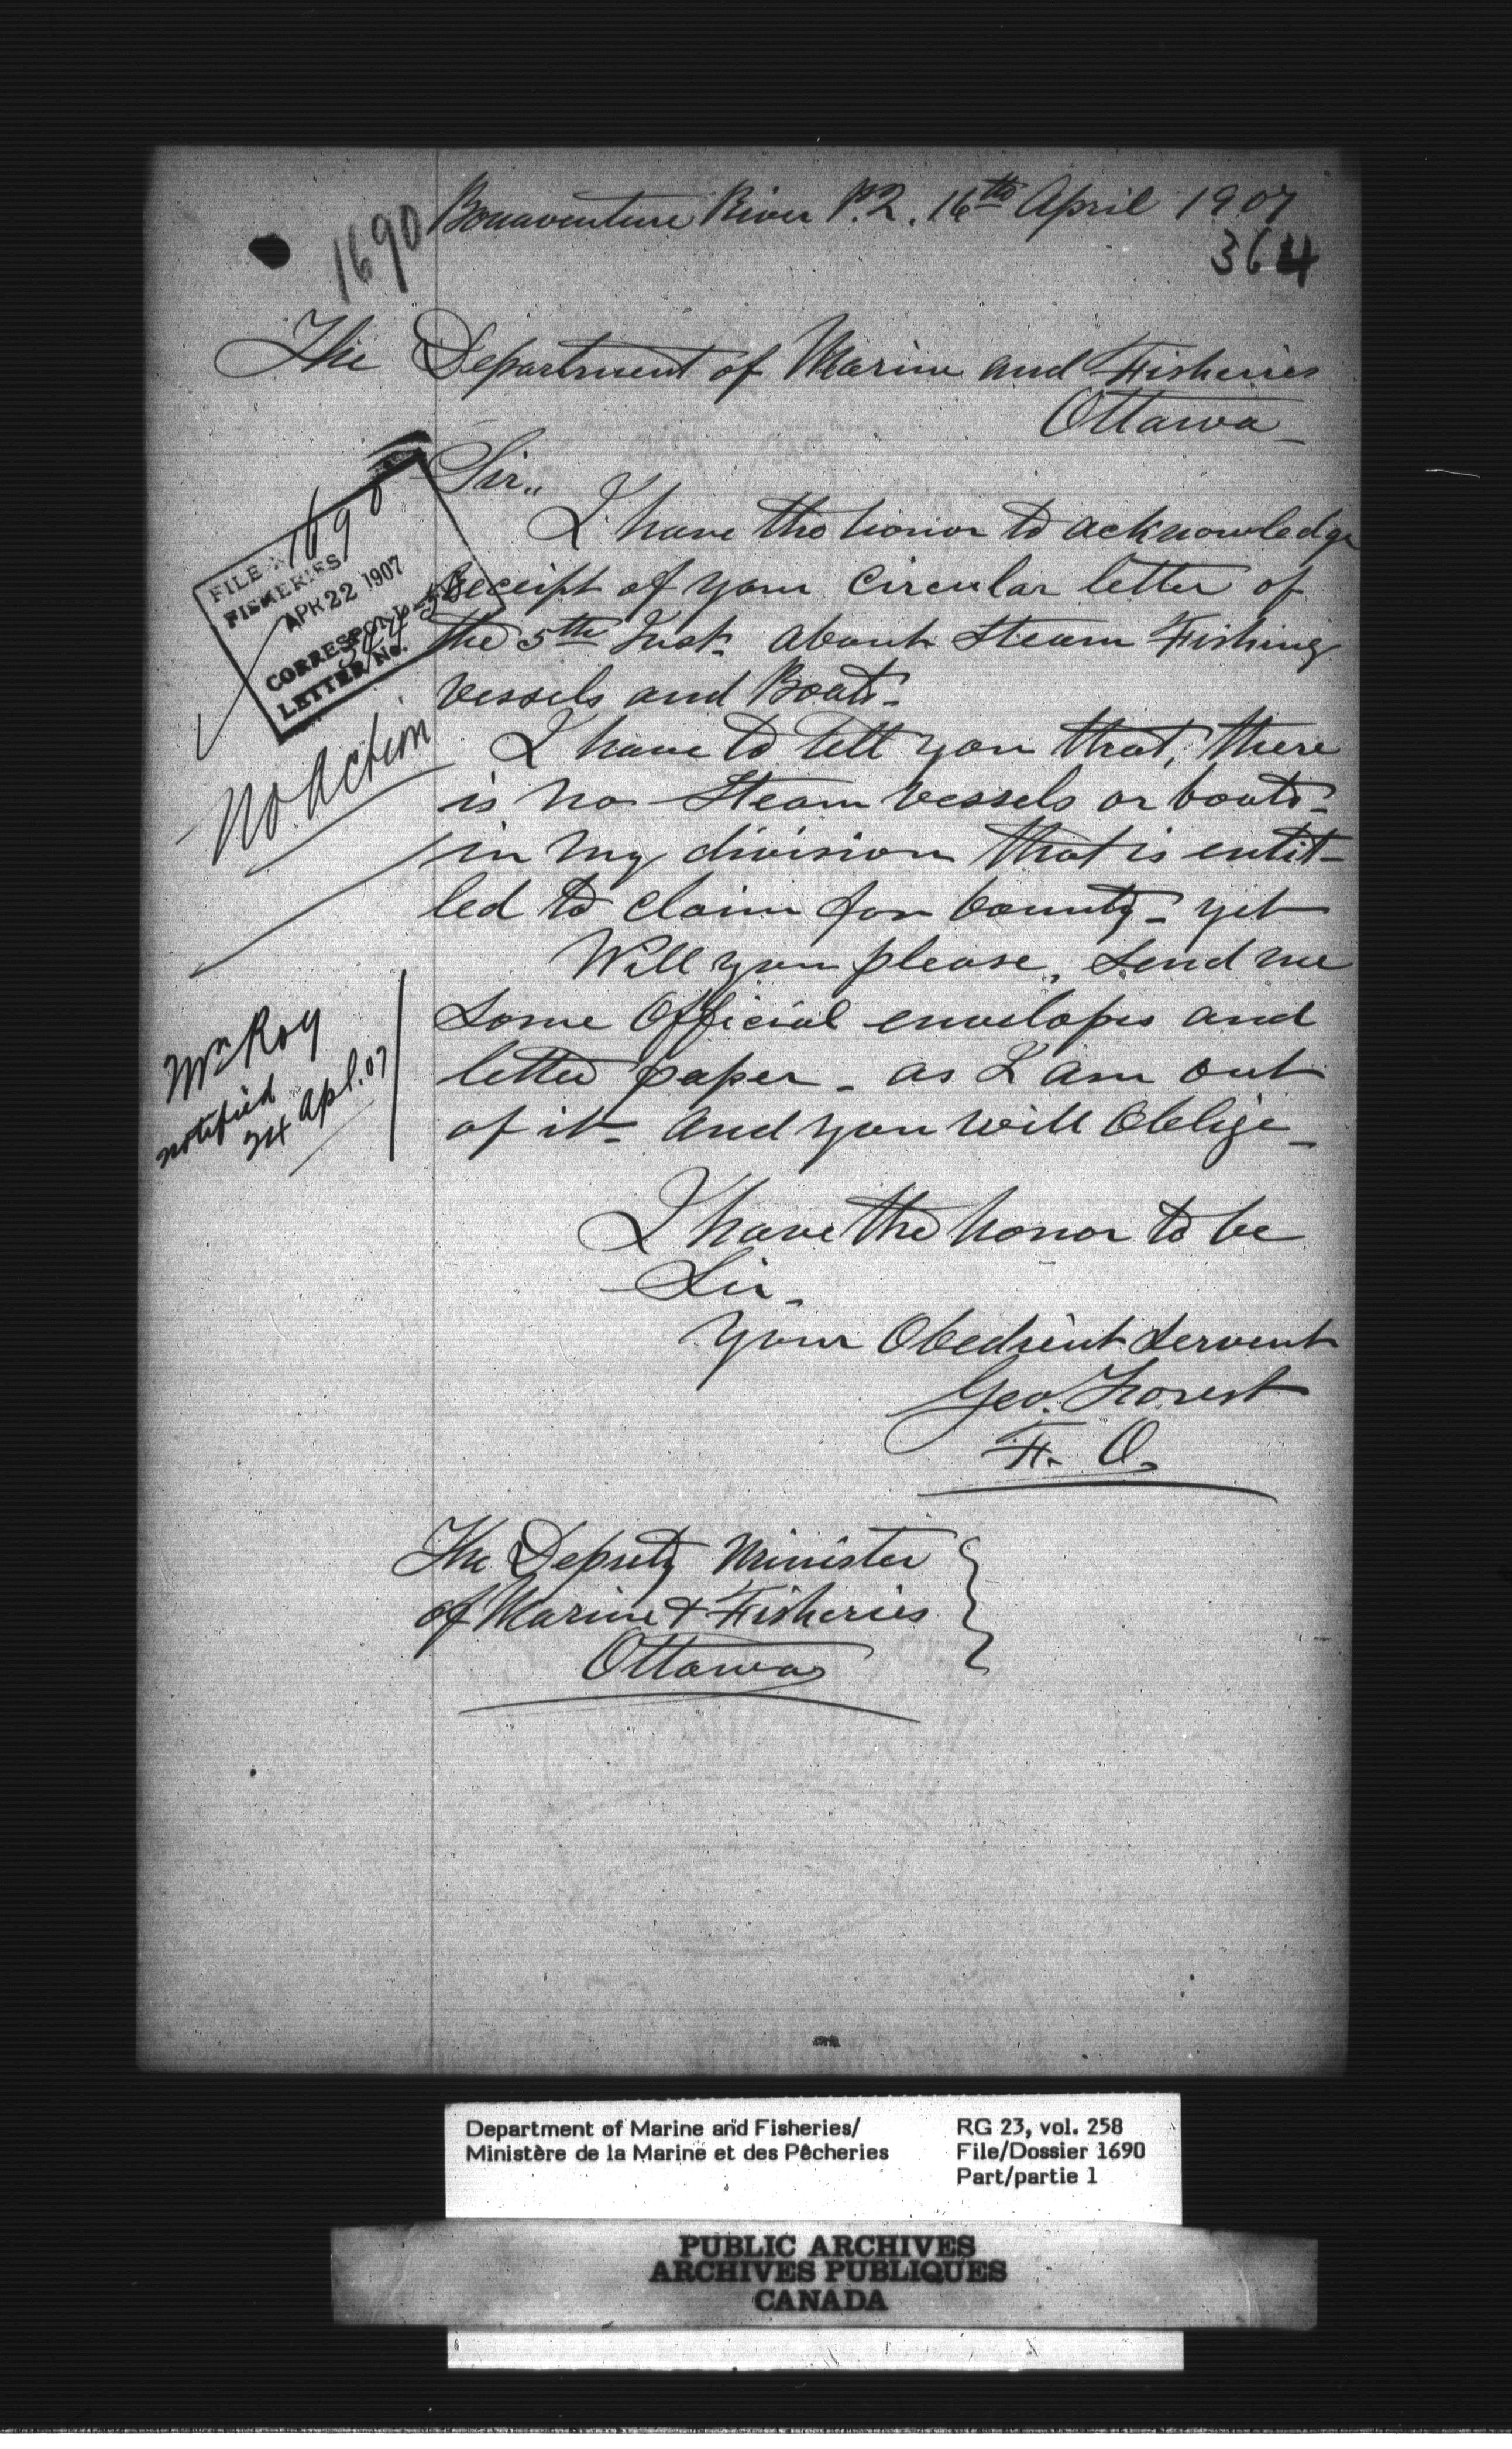 Bonaventure River P.Q. 16th April 1907
1690
364
The Department of Marine and Fisheries
Ottawa
Sir,,
I have the honor to acknowledge
receipt of your Circular letter of
the 5th Inst. about Steam Fishing
vessels and Boats.
I have to tell you that, there
is no Steam vessels or boats
in my division that is entit-
led to claim for bounty - yet
Will you please, send me
some Official envelopes and
letter paper - as I am out
of it - and you will Oblige -
I have the honor to be
Sir -
your Obedient Servent
Geo. Forest
F. O.
The Deputy Minister
of Marine & Fisheries
Ottawa
FILE N 1690
FISHERIES
APR 22 1907
CORRESPOND
LETTER No.
No. Action
Mr Roy
notified
24 Apl. 07
Department of Marine and Fisheries/
Ministère de la Marine et des Pêcheries
RG 23, vol. 258
File/Dossier 1690
Part/partie 1
PUBLIC ARCHIVES
ARCHIVES PUBLIQUES
CANADA